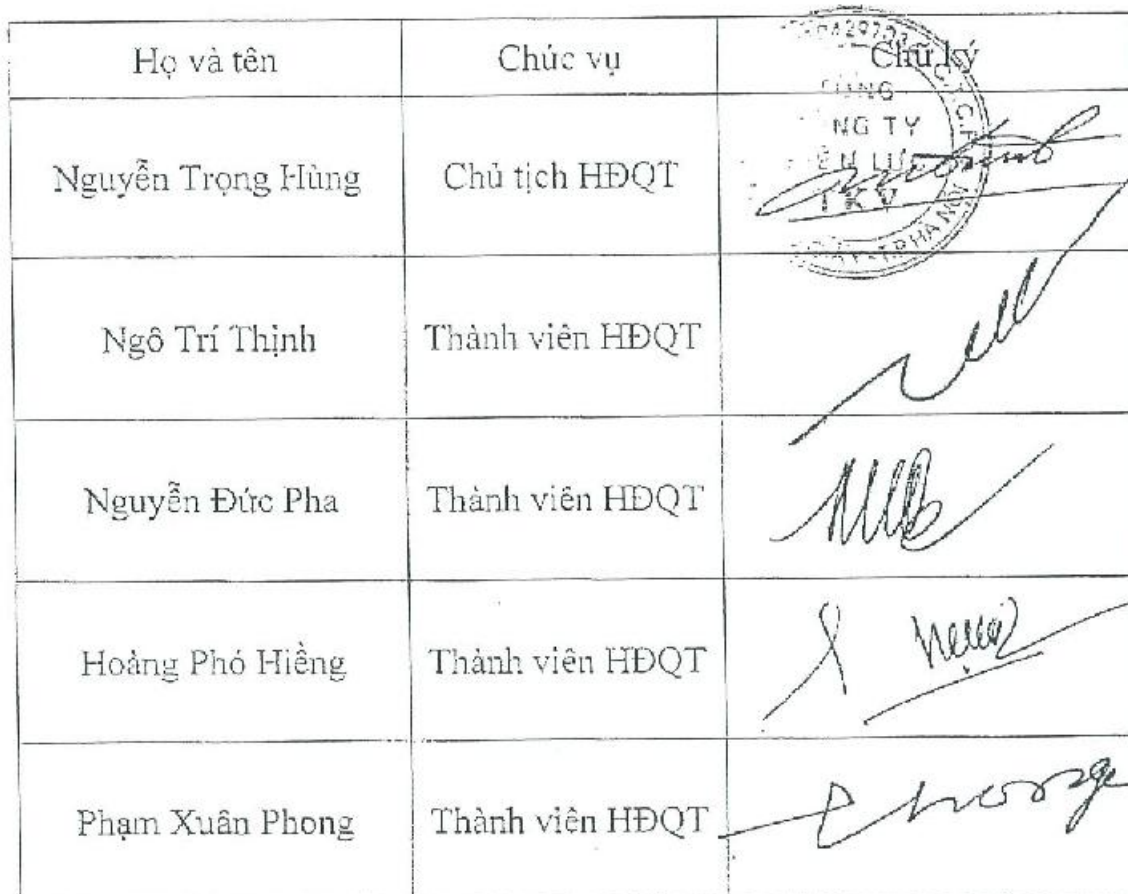 Họ và tên Chức vụ Chữ ký
Nguyễn Trọng Hùng Chủ tịch HĐQT
NG TY
TKV
T.P HÀ NỘI
Ngô Trí Thịnh Thành viên HĐQT
Nguyễn Đức Pha Thành viên HĐQT
Hoàng Phó Hiềng Thành viên HĐQT
Phạm Xuân Phong Thành viên HĐQT